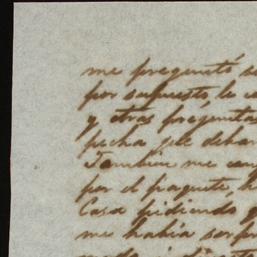 me preguntó s
por supuesto le c
y otras pregunta
fecha
Tambien me
por el paquete, h
Casa pidiendo y
me habia sorpr